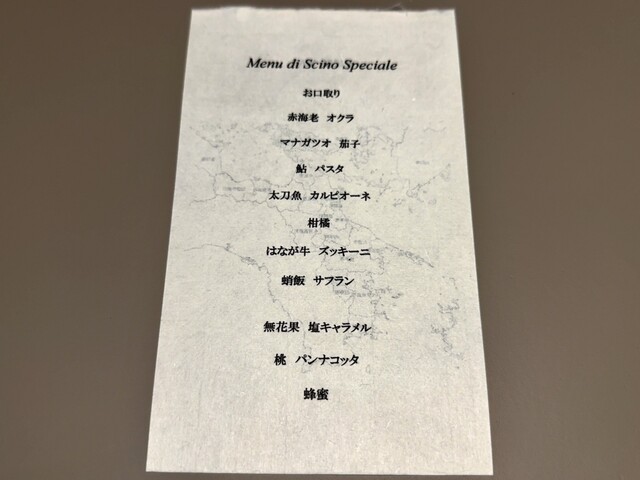 Menu di Scino Speciale
お口取り
赤海老 オクラ
マナガツオ 茄子
鮎 パスタ
太刀魚 カルピオーネ
柑橘
はなが牛 ズッキーニ
蛸飯 サフラン
無花果 塩キャラメル
桃 パンナコッタ
蜂蜜